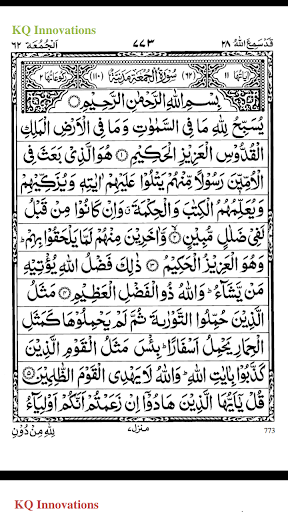 KQ Innovations
قد سمع الله ٢٨
٧٧٣
الجمعة ٦٢
اٰیاتها ١١ (٦٢) سُوْرَةُ الْجُمُعَةِ مَدَنِيَّةٌ (١١٠) رکوعاتها ٢
بِسْمِ اللّٰهِ الرَّحْمٰنِ الرَّحِيْمِ
يُسَبِّحُ لِلّٰهِ مَا فِي السَّمٰوٰتِ وَمَا فِي الْاَرْضِ الْمَلِكِ
الْقُدُّوْسِ الْعَزِيْزِ الْحَكِيْمِ ① هُوَ الَّذِيْ بَعَثَ فِي
الْاُمِّيّٖنَ رَسُوْلًا مِّنْهُمْ يَتْلُوْا عَلَيْهِمْ اٰيٰتِهٖ وَيُزَكِّيْهِمْ
وَيُعَلِّمُهُمُ الْكِتٰبَ وَالْحِكْمَةَ ۗ وَاِنْ كَانُوْا مِنْ قَبْلُ
لَفِيْ ضَلٰلٍ مُّبِيْنٍ ② وَّاٰخَرِيْنَ مِنْهُمْ لَمَّا يَلْحَقُوْا بِهِمْ ؕ
وَهُوَ الْعَزِيْزُ الْحَكِيْمُ ③ ذٰلِكَ فَضْلُ اللّٰهِ يُؤْتِيْهِ
مَنْ يَّشَآءُ ؕ وَاللّٰهُ ذُو الْفَضْلِ الْعَظِيْمِ ④ مَثَلُ
الَّذِيْنَ حُمِّلُوا التَّوْرٰىةَ ثُمَّ لَمْ يَحْمِلُوْهَا كَمَثَلِ
الْحِمَارِ يَحْمِلُ اَسْفَارًا ؕ بِئْسَ مَثَلُ الْقَوْمِ الَّذِيْنَ
كَذَّبُوْا بِاٰيٰتِ اللّٰهِ ؕ وَاللّٰهُ لَا يَهْدِي الْقَوْمَ الظّٰلِمِيْنَ ⑤
قُلْ يٰٓاَيُّهَا الَّذِيْنَ هَادُوْٓا اِنْ زَعَمْتُمْ اَنَّكُمْ اَوْلِيَآءُ
لِلّٰهِ مِنْ دُوْنِ
منزل ٧
773
KQ Innovations